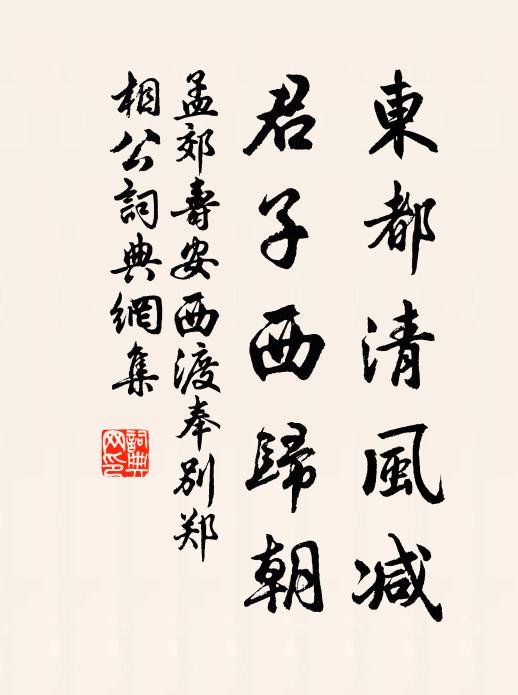 東都清風减
君子西歸朝
孟郊壽安西渡奉別郑
相公詞典網集
詞典网印